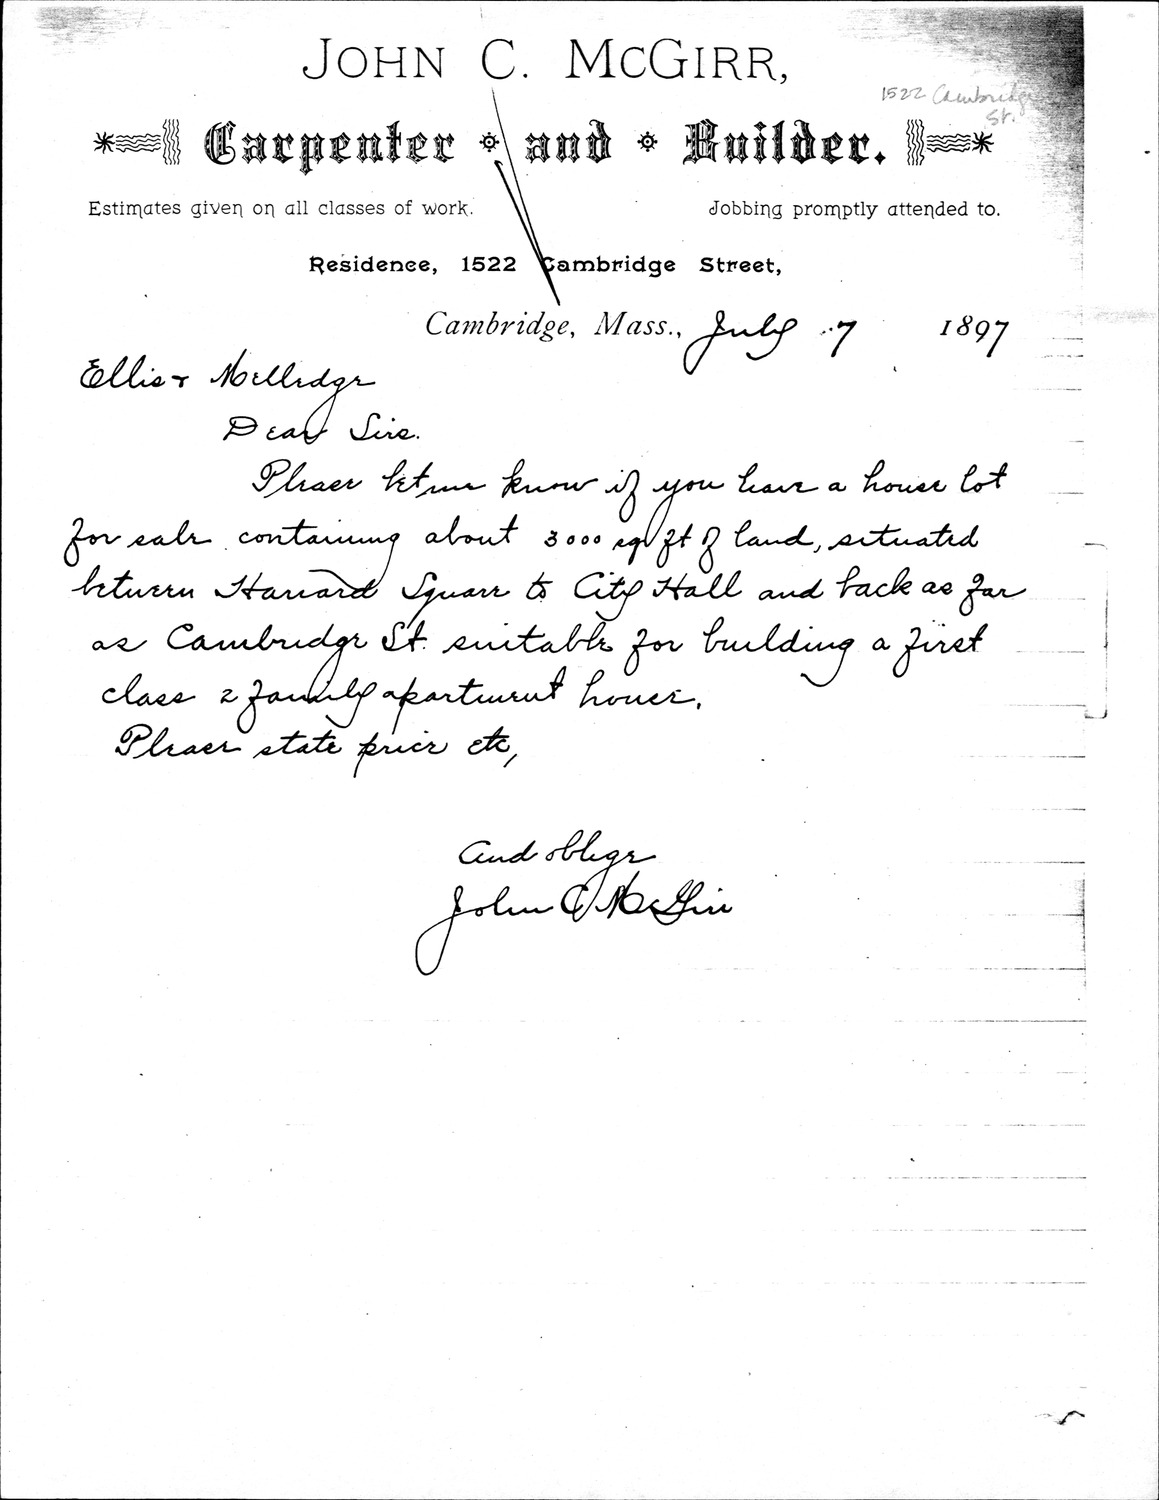 JOHN C. MCGIRR,
1522 Cambridge
St.
Carpenter and Builder.
Estimates given on all classes of work.
Jobbing promptly attended to.
Residence, 1522 Cambridge Street,
Cambridge, Mass., July 7 1897
Ellis & Melledge
Dear Sirs.
Please let me know if you have a house lot
for sale containing about 3000 sq ft of land, situated
between Harvard Square to City Hall and back as far
as Cambridge St. suitable for building a first
class 2 family apartment house.
Please state price etc,
And oblige
John C McGirr